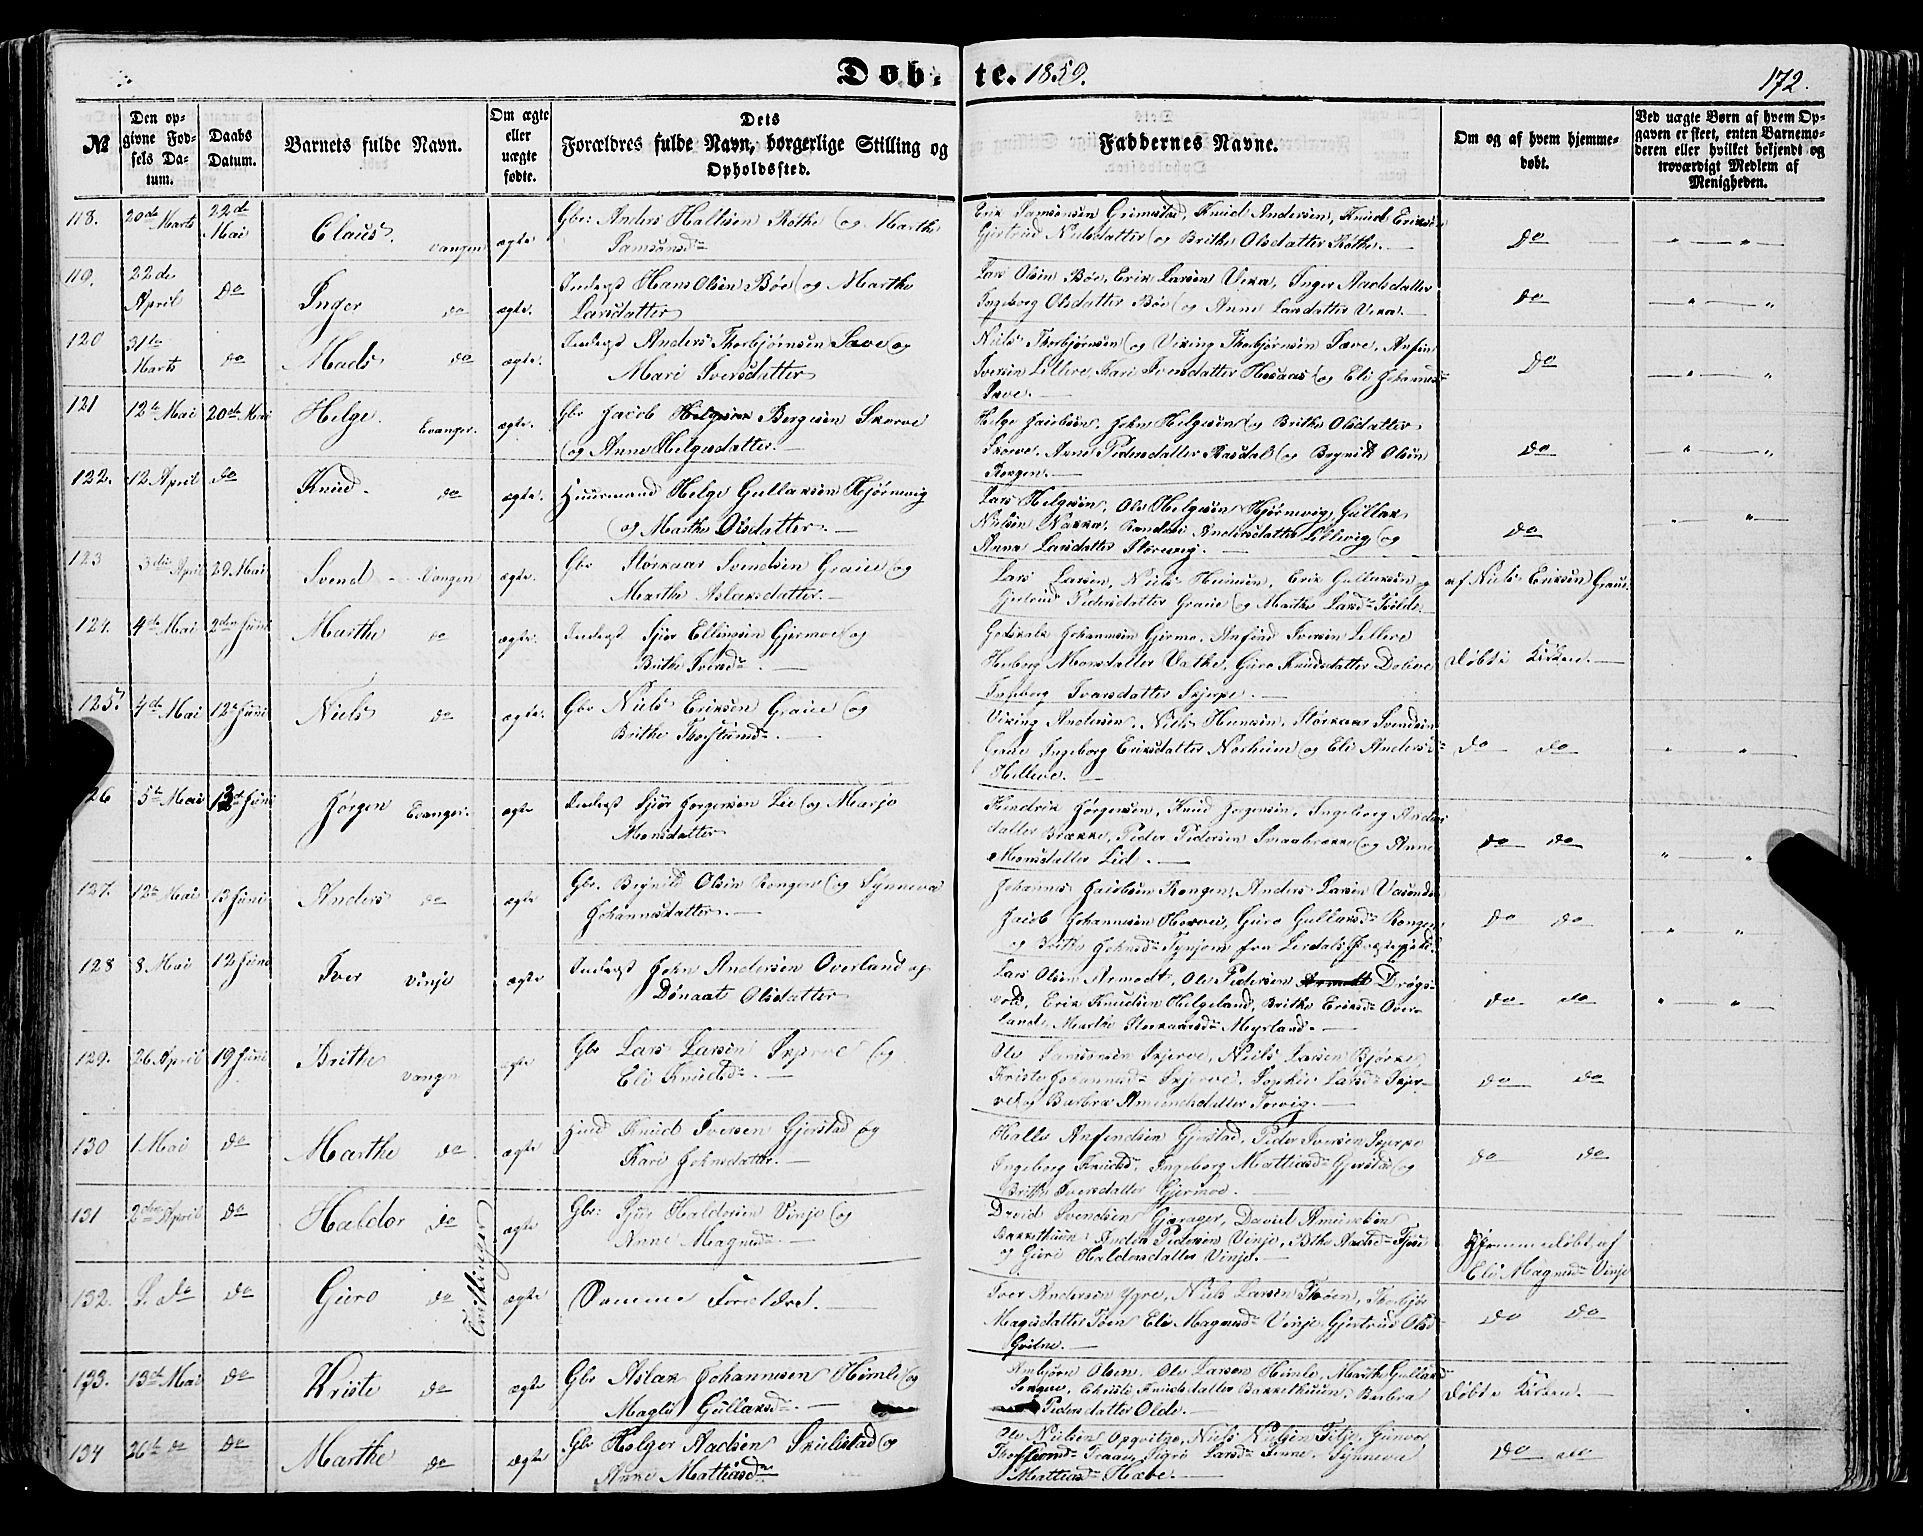 Døb- te. 1859. 172.
№ Den opgivne Fødsels Datum. Daabs Datum. Barnets fulde Navn. Om ægte eller uægte fødte. Dets Forældres fulde Navn, borgerlige Stilling og Opholdssted. Faddernes Navne. Om og af hvem hjemmedøbt. Ved uægte Børn af hvem Opgaven er skeet, enten Barnemoderen eller hvilket bekjendt og troværdigt Medlem af Menigheden.
118. 20de Marts 22de Mai Claus. Vangen ægte. Gbr: Anders Hallsen Rokne og Marthe Samsonsd. Erik Samsonsen Grimestad, Knud Andersen, Knud Eriksen
Gjertrud Nielsdatter og Brithe Olsdatter Rokne. Do
119. 22de April Do Inger do ægte. Inderst Hans Olsen Bøe og Marthe Larsdatter Lars Olsen Bøe, Erik Larsen Ukra, Inger
Ingeborg Olsdatter Bøe og Anne Larsdatter Do
120 31te Marts do Mads do ægte. Inderst Anders Thorbjørnsen Sæve og Mari Iversdatter Niels Thorbjørnsen og Viking Thorbjørnsen Sæve, Anfin
Iversen Lillere, Kari Iversdatter og Eli Johannesd.
Sæve. Do
121 12te Mai 20de Mai Helge. Evanger. ægte. Gbr Jacob Bergesen Skorve og Anne Helgesdatter. Helge Jacobsen, John Helgesen og Brithe Olsdatter
Skorve, Anne Pedersdatter Rasdal og Brynild Olsen
Rongen. Do
122. 12 April do Knud. do ægte. Huusmand Helge Gullaksen Hjørnevig og Marthe Olsdatter. Lars Helgesen, Ole Helgesen Hjørnevig, Gullak
Nielsen Andersdatter Lillevig og
Anna Larsdatter Do
123 3die April 29 Mai Svend Vangen ægte. Gbr Størkaar Svendsen Graue og Marthe Aslaksdatter. Lars Larsen, Niels Erik Gullaksen og
Gjertrud Pedersdatter Graue og Marthe Larsd. Tvilde af Niels Eriksen Graue
124. 4de Mai 2den Juni Marthe do ægte. Inderst Sjur Ellingsen Gjermo og Brithe Iversd. Godskalk Johannesen Gjermo, Anfind Iversen Lillere
Herborg Monsdatter Guro Knudsdatter
Ingeborg Ivarsdatter Skjerpe. Døbt i Kirken.
125. 4de Mai 12te Juni Niels do ægte. Gbr Niels Eriksen Graue og Brithe Thorsteinsd. Viking Andersen, Niels Størkaar Svendsen
Graue Ingeborg Eriksdatter Norheim og Eli Andersd.
Hilleve. do do
126 5te Mai 13de Juni Jørgen Evanger. ægte Inderst Sjur Jørgensen Lie og Marjo Monsdatter Hendrik Jørgensen, Knud Jørgensen, Ingeborg Andersdatter
Brække, Peder Pedersen og Anne
Monsdatter Lid. do do
127. 12te Mai 13 Juni Anders do ægte Gbr. Brynild Olsen Rongen og Synneva Johannesdatter. Johannes Jacobsen Rongen, Anders Larsen
Jacob Johannesen Horvei, Guro Gullaksd. Rongen
og Brithe Johnsd. Tynjom fra Lerdals Præstegjeld. do do
128 8 Mai 12 Juni Iver Vinje ægte Inderst John Andersen Overland og Dønaat Olsdatter Lars Olsen Armodt, Ole Pedersen Drøgsvold,
Erik Knudsen Helgeland, Brithe Eriksd. Overland,
Martha Størkaarsd. Myrland. do do
129. 26 April 19 Juni Brithe Vangen ægte Gbr Lars Larsen Skjerve og Eli Knudsd. Ole Samsonsen Skjerve, Niels Larsen Bjørke,
Kriste Johannesd. Skjerve, Sophie Larsd. Skjerve
og Barbra Amundsdatter Torvig. do do
130 1 Mai do Marthe do ægte Huusd Knud Iversen Gjerstad og Kari Johnsdatter. Halle Anfindsen Gjerstad, Peder Iversen Skjerpe
Ingeborg Knudsd, Ingeborg Mathiasd. Gjerstad og
Brithe Iversdatter Gjermoe. do do
131 2den April Do Haldor do Tvillinger ægte Gbr: Sjur Haldorsen Vinje og Anne Magnusd. David Svendsen Gjerager, David Amundsen
Bakkethuun, Anders Pedersen Vinje,
og Guro Haldorsdatter Vinje. Hjemmedøbt af Eli Magnusd. Vinje
132. S. Do do Guro do ægte Samme Forældre. Iver Andersen Ygre, Niels Larsen
Magnusdatter Eli Magnusd. Vinje, Gjertrud Olsd
Gvitne. do do
133. 13de Mai do Kriste do ægte Gbr Aslak Johannesen Himle og Magli Gullaksd. Ambjørn Olsen, Ole Larsen Himle, Marthe Gullaksd
Christi Knudsdatter Bakkethuun, Barbra
Pedersdatter Olde. døbt i Kirken.
134 26de do Do Marthe do ægte Gbr Holger Aadsen Skulestad og Anne Mathiasd. Ole Nielsen Opqvitne, Niels Nielsen Gunvor
Thorsteinsd. Traae, Sigrid Larsd. Synneve
Mathiasd. Hæve. do do